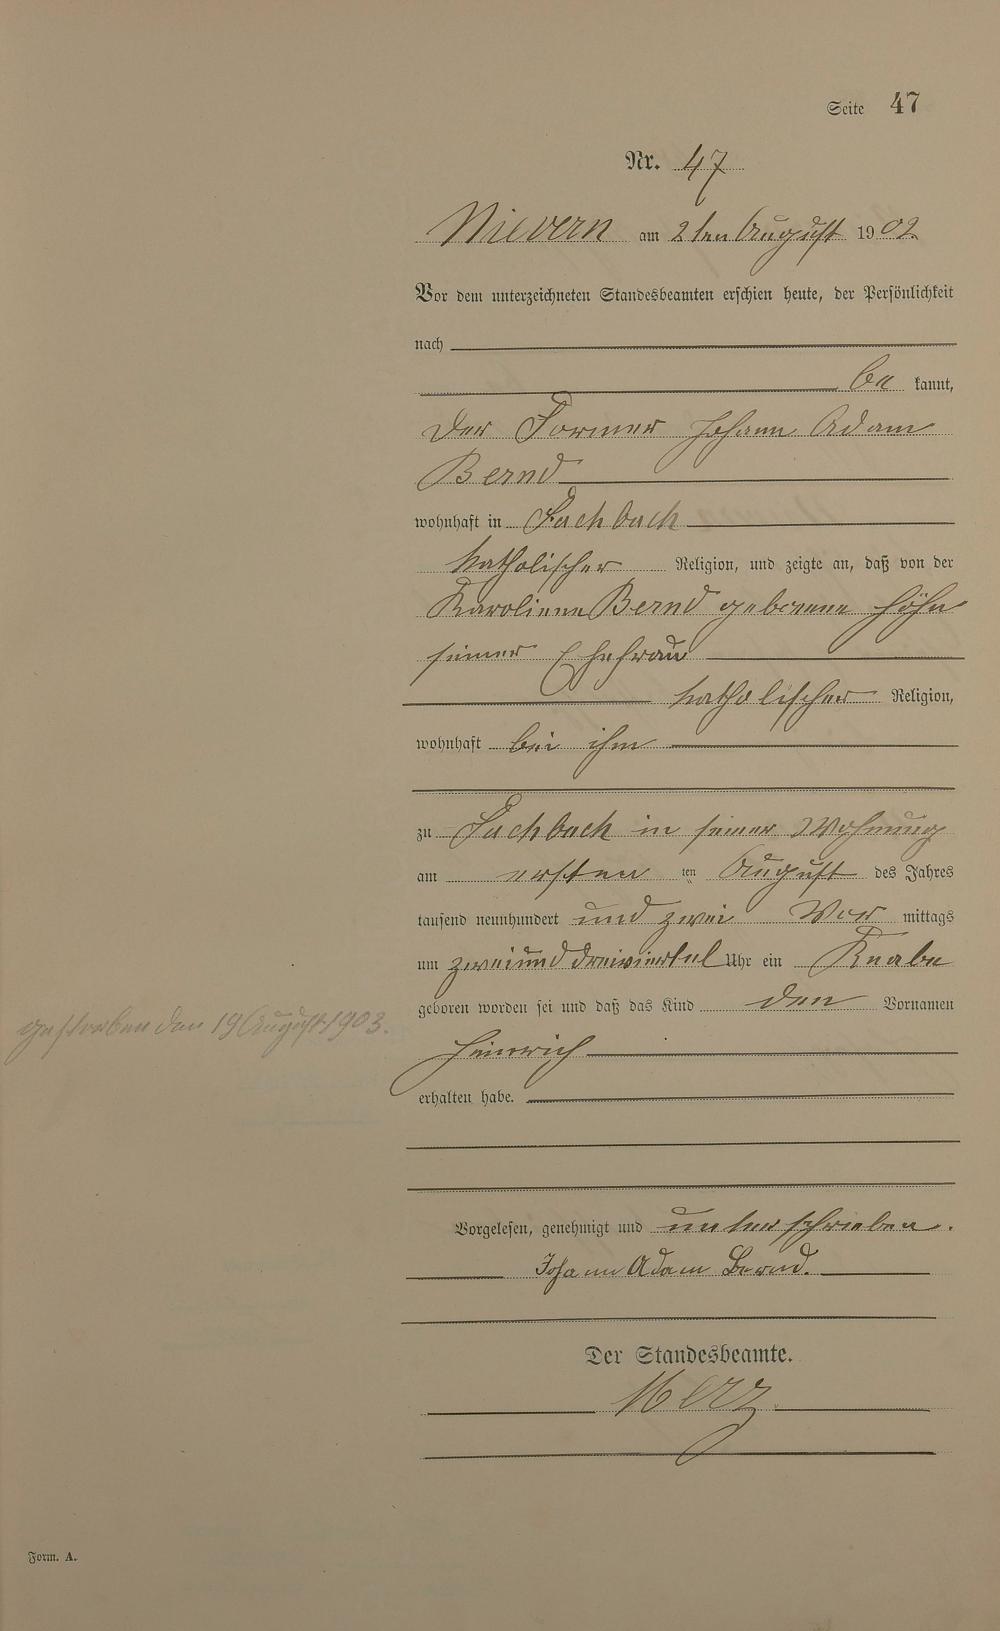 Seite 47
Nr. 47
Nievern am 2ten August 1902
Vor dem unterzeichneten Standesbeamten erschien heute, der Persönlichkeit
nach
be kannt,
der Former Johann Adam
Bernd
wohnhaft in Fachbach
katholischer Religion, und zeigte an, daß von der
Karoline Bernd geborene Höhn
seiner Ehefrau
katholischer Religion,
wohnhaft bei ihm
zu Fachbach in seiner Wohnung
am ersten ten August des Jahres
tausend neunhundert und zwei Vor mittags
um zweiunddreiviertel Uhr ein Knabe
geboren worden sei und daß das Kind den Vornamen
gestorben den 19 August 1903.
Heinrich
erhalten habe.
Vorgelesen, genehmigt und unterschrieben.
Johann Adam Bernd.
Der Standesbeamte.
Merz
Form. A.